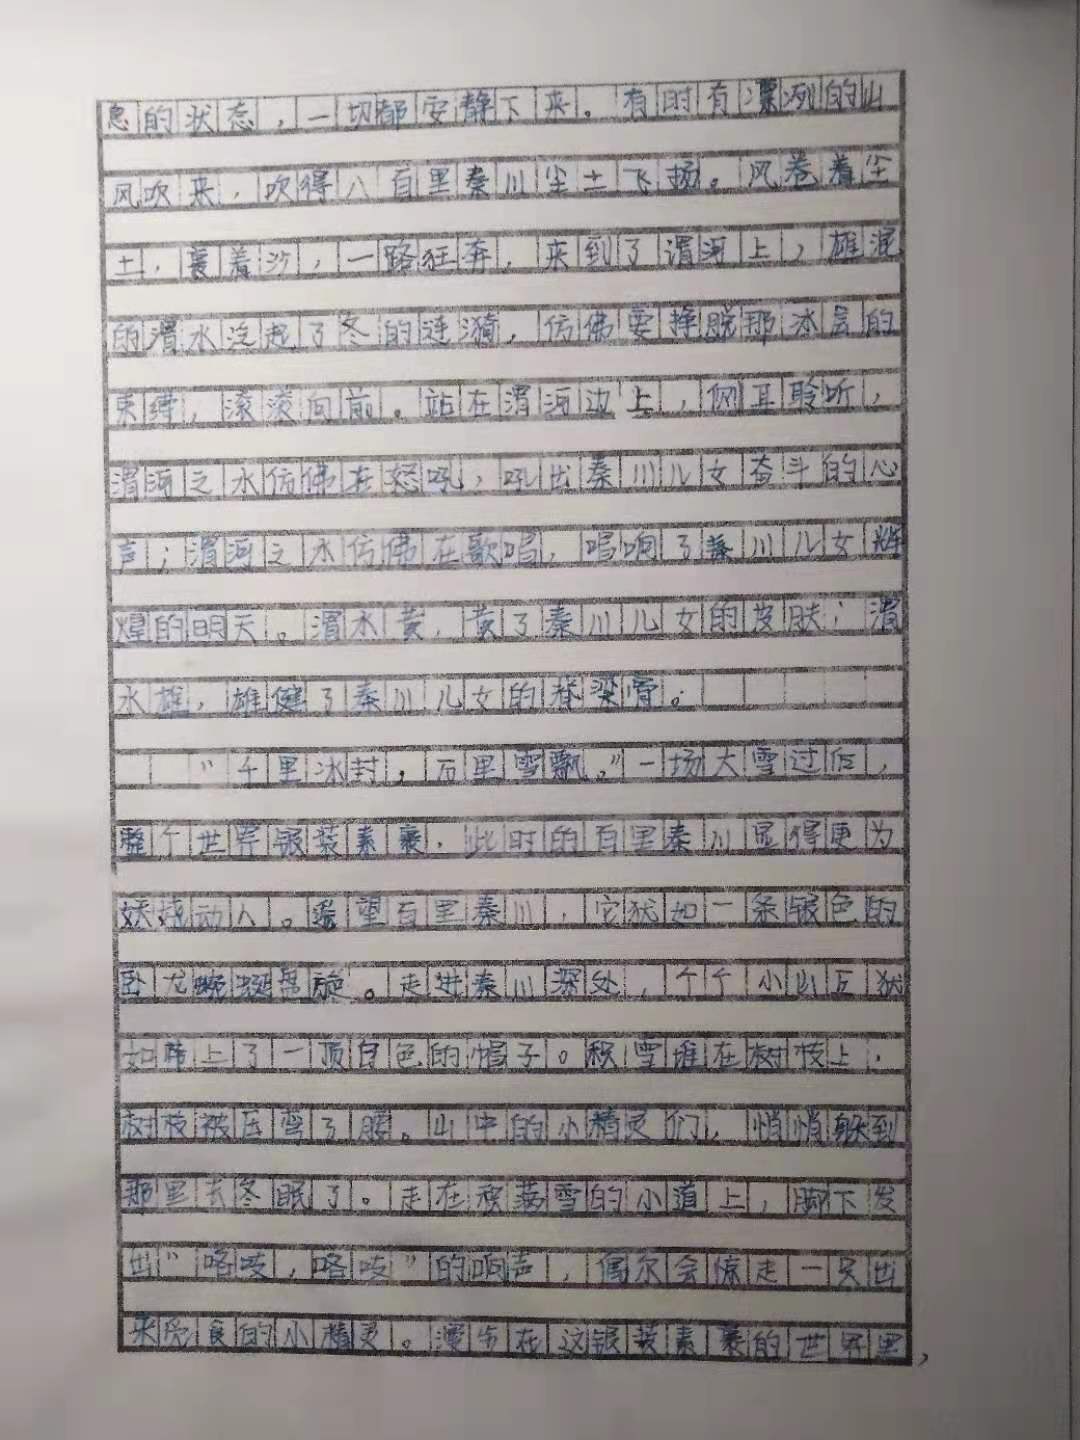 息的状态，一切都安静下来。有时有凛冽的山
风吹来，吹得八百里秦川尘土飞扬。风卷着尘
土，裹着沙，一路狂奔，来到了渭河上，雄浑
的渭水泛起了冬的涟漪，仿佛要挣脱那冰层的
束缚，滚滚向前。站在渭河边上，侧耳聆听，
渭河之水仿佛在怒吼，吼出秦川儿女奋斗的心
声；渭河之水仿佛在歌唱，唱响了秦川儿女辉
煌的明天。渭水黄，黄了秦川儿女的皮肤；渭
水雄，雄健了秦川儿女的脊梁骨。
“千里冰封，万里雪飘。”一场大雪过后，
整个世界银装素裹，此时的百里秦川显得更为
妖娆动人。遥望百里秦川，它犹如一条银色的
卧龙蜿蜒盘旋。走进秦川深处，个个小山丘犹
如带上了一顶白色的帽子。积雪堆在树枝上，
树枝被压弯了腰。山中的小精灵们，悄悄躲到
那里去冬眠了。走在积满雪的小道上，脚下发
出“咯吱，咯吱”的响声，偶尔会惊走一只出
来觅食的小精灵。漫步在这银装素裹的世界里，